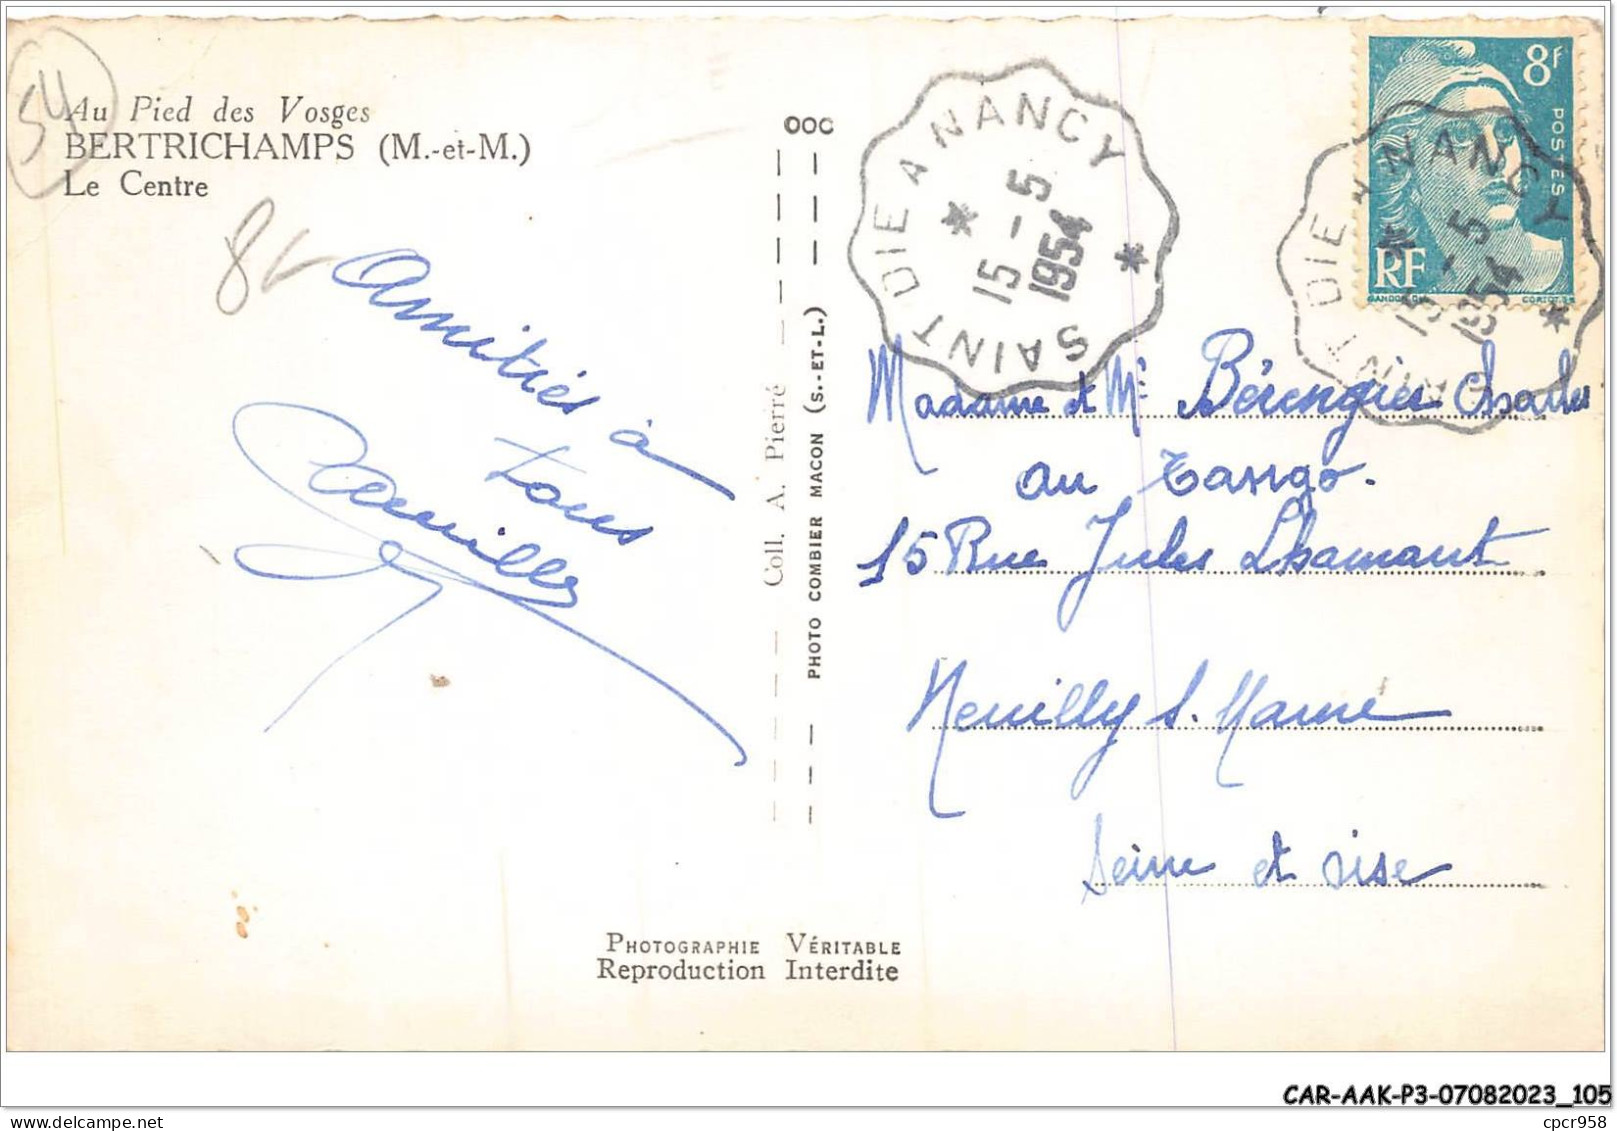 54
Au Pied des Vosges
BERTRICHAMPS (M.-et-M.)
Le Centre
8
Amitiés à
tous
Camille
OOC
Coll. A. Pierré
PHOTO COMBIER MACON (S.-ET-L.)
SAINT DIE A NANCY
15 - 5
1954
8F
POSTES
RF
GANDON
CORTOT
SAINT DIE A NANCY
15 - 5
1954
Madame et Mr Bérengier Charles
au Tango.
15 Rue Jules Lhamant
Neuilly s. Marne
Seine et oise
PHOTOGRAPHIE VÉRITABLE
Reproduction Interdite
CAR-AAK-P3-07082023_105
cpcr958